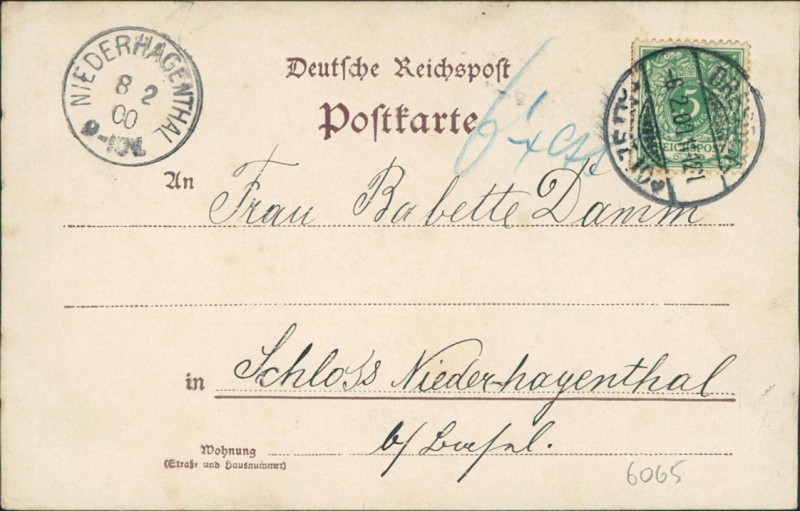 NIEDERHAGENTHAL
8 2
00
Deutsche Reichspost
Postkarte
5
REICHSPOST
An Frau Babette Damm
in Schloss Niederhagenthal
b/
Wohnung
(Straße und Hausnummer)
6065